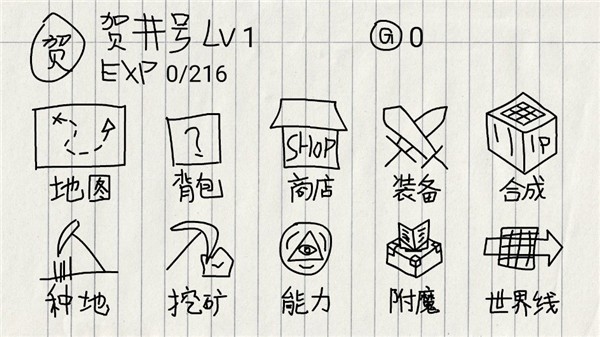 贺
贺井号 LV 1
G 0
EXP 0/216
?
SHOP
IP
地图 背包 商店 装备 合成
种地 挖矿 能力 附魔 世界线